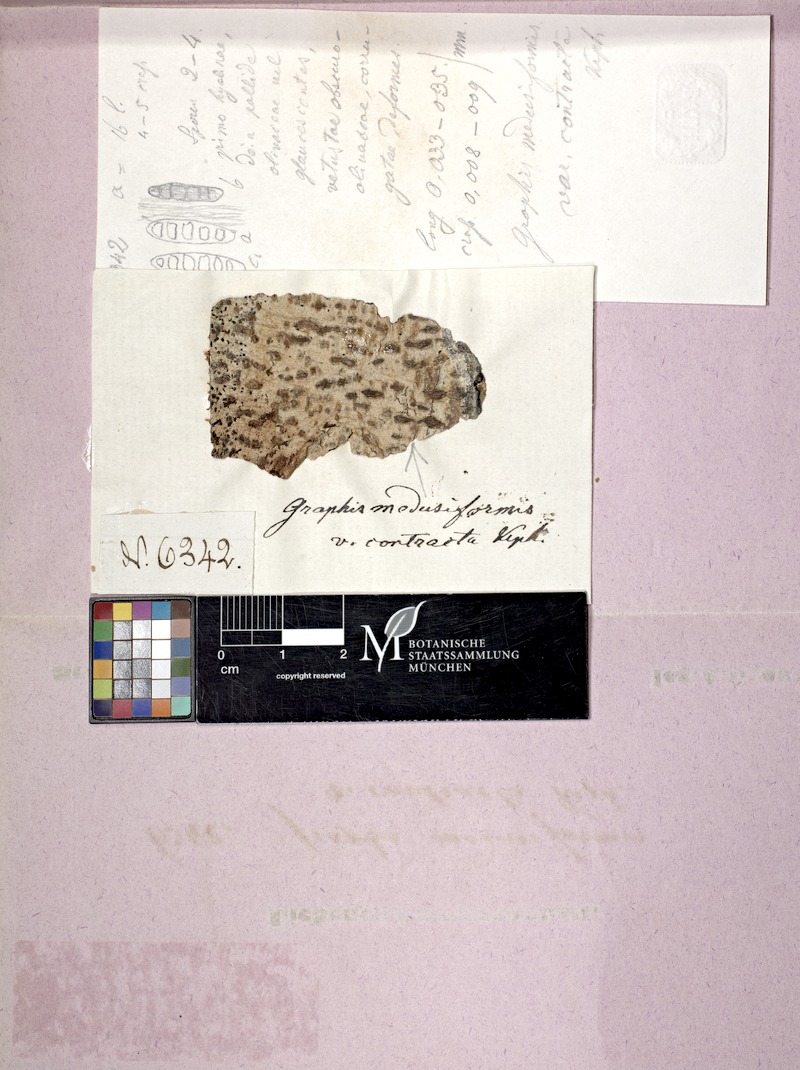 342 a = 16 l.
4-5 crass
Sporae 2-4.
primo hyalinae,
dein pallide
olivaceae vel
glaucescentes,
vetustae obscuro-
olivaceae, corru-
gatae deformes.
long 0,033-035
crass. 0,008-009 mm.
Graphis medusiformis
var. contracta
Kph.
b
a
c.
Graphis medusiformis
v. contracta Kph.
N. 6342.
0 1 2
cm
copyright reserved
M BOTANISCHE
STAATSSAMMLUNG
MÜNCHEN